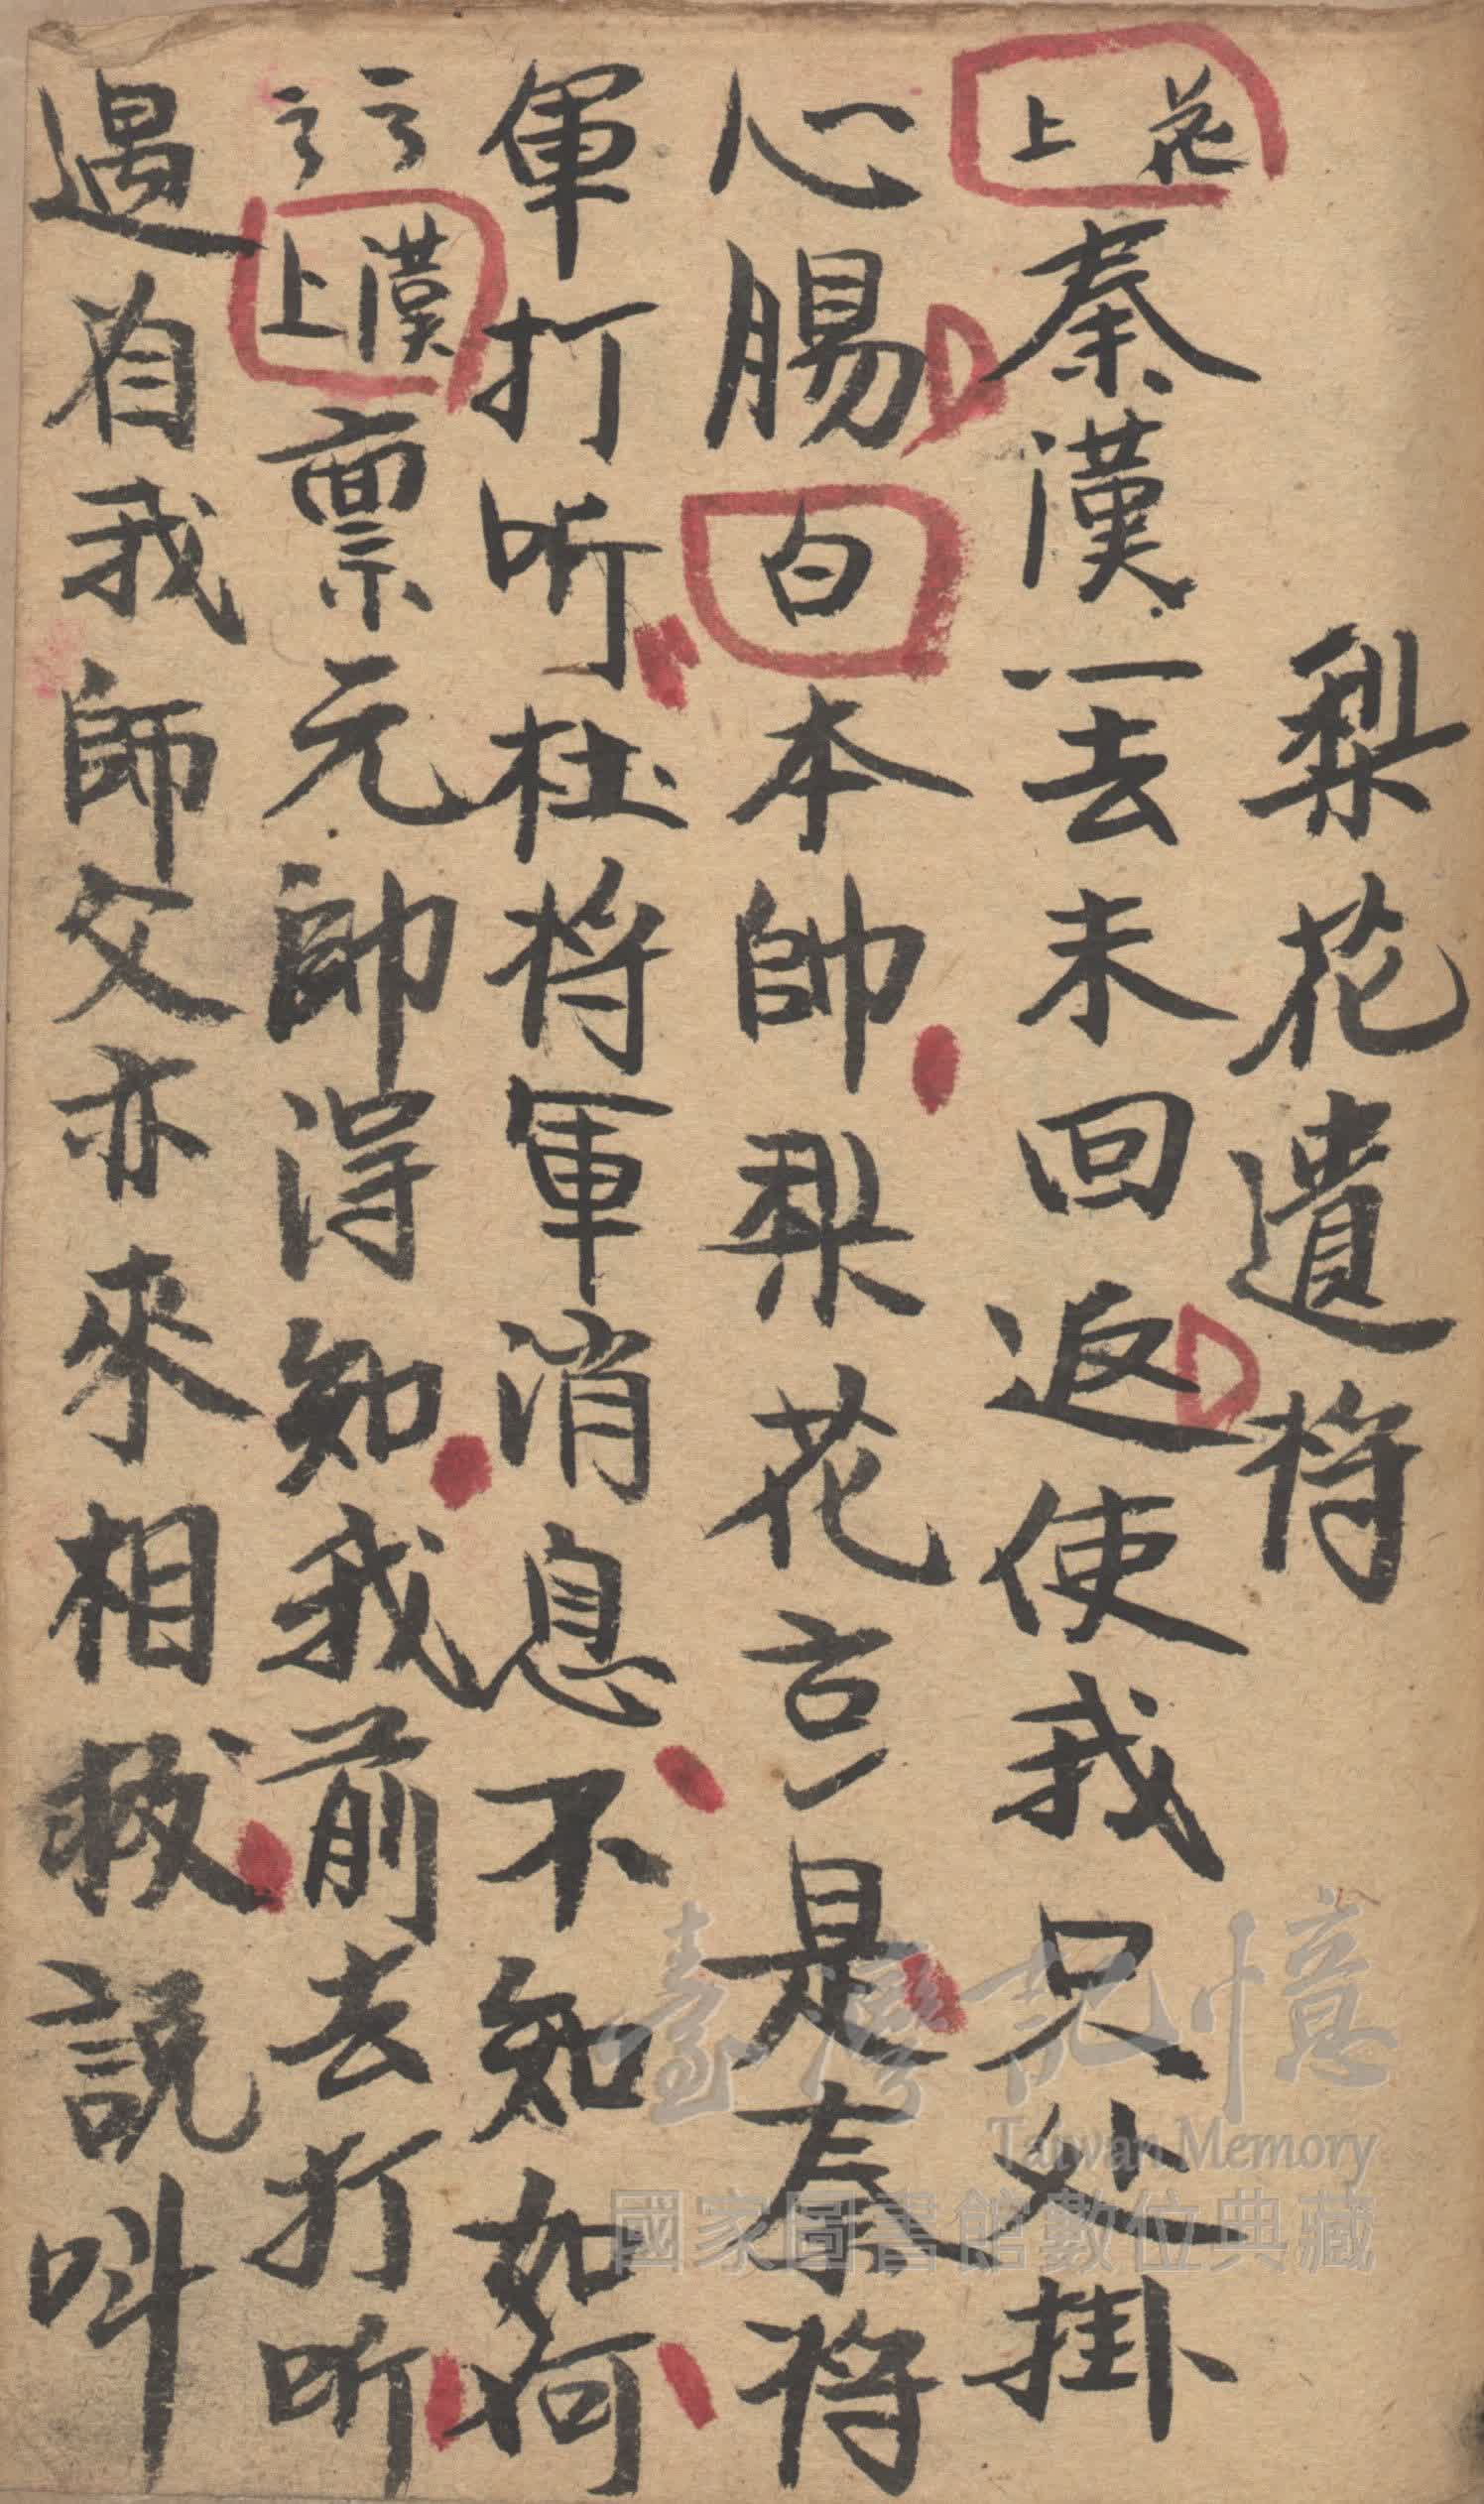 梨花遺将
花上秦漢一去未回返使我只処掛
心腸白本帥梨花言是秦将
軍打听杜将軍消息不知如何
云云漢上禀元帥淂知我前去打听
遇有我師父亦來相救説叫
臺灣記憶
Taiwan Memory
國家圖書館數位典藏